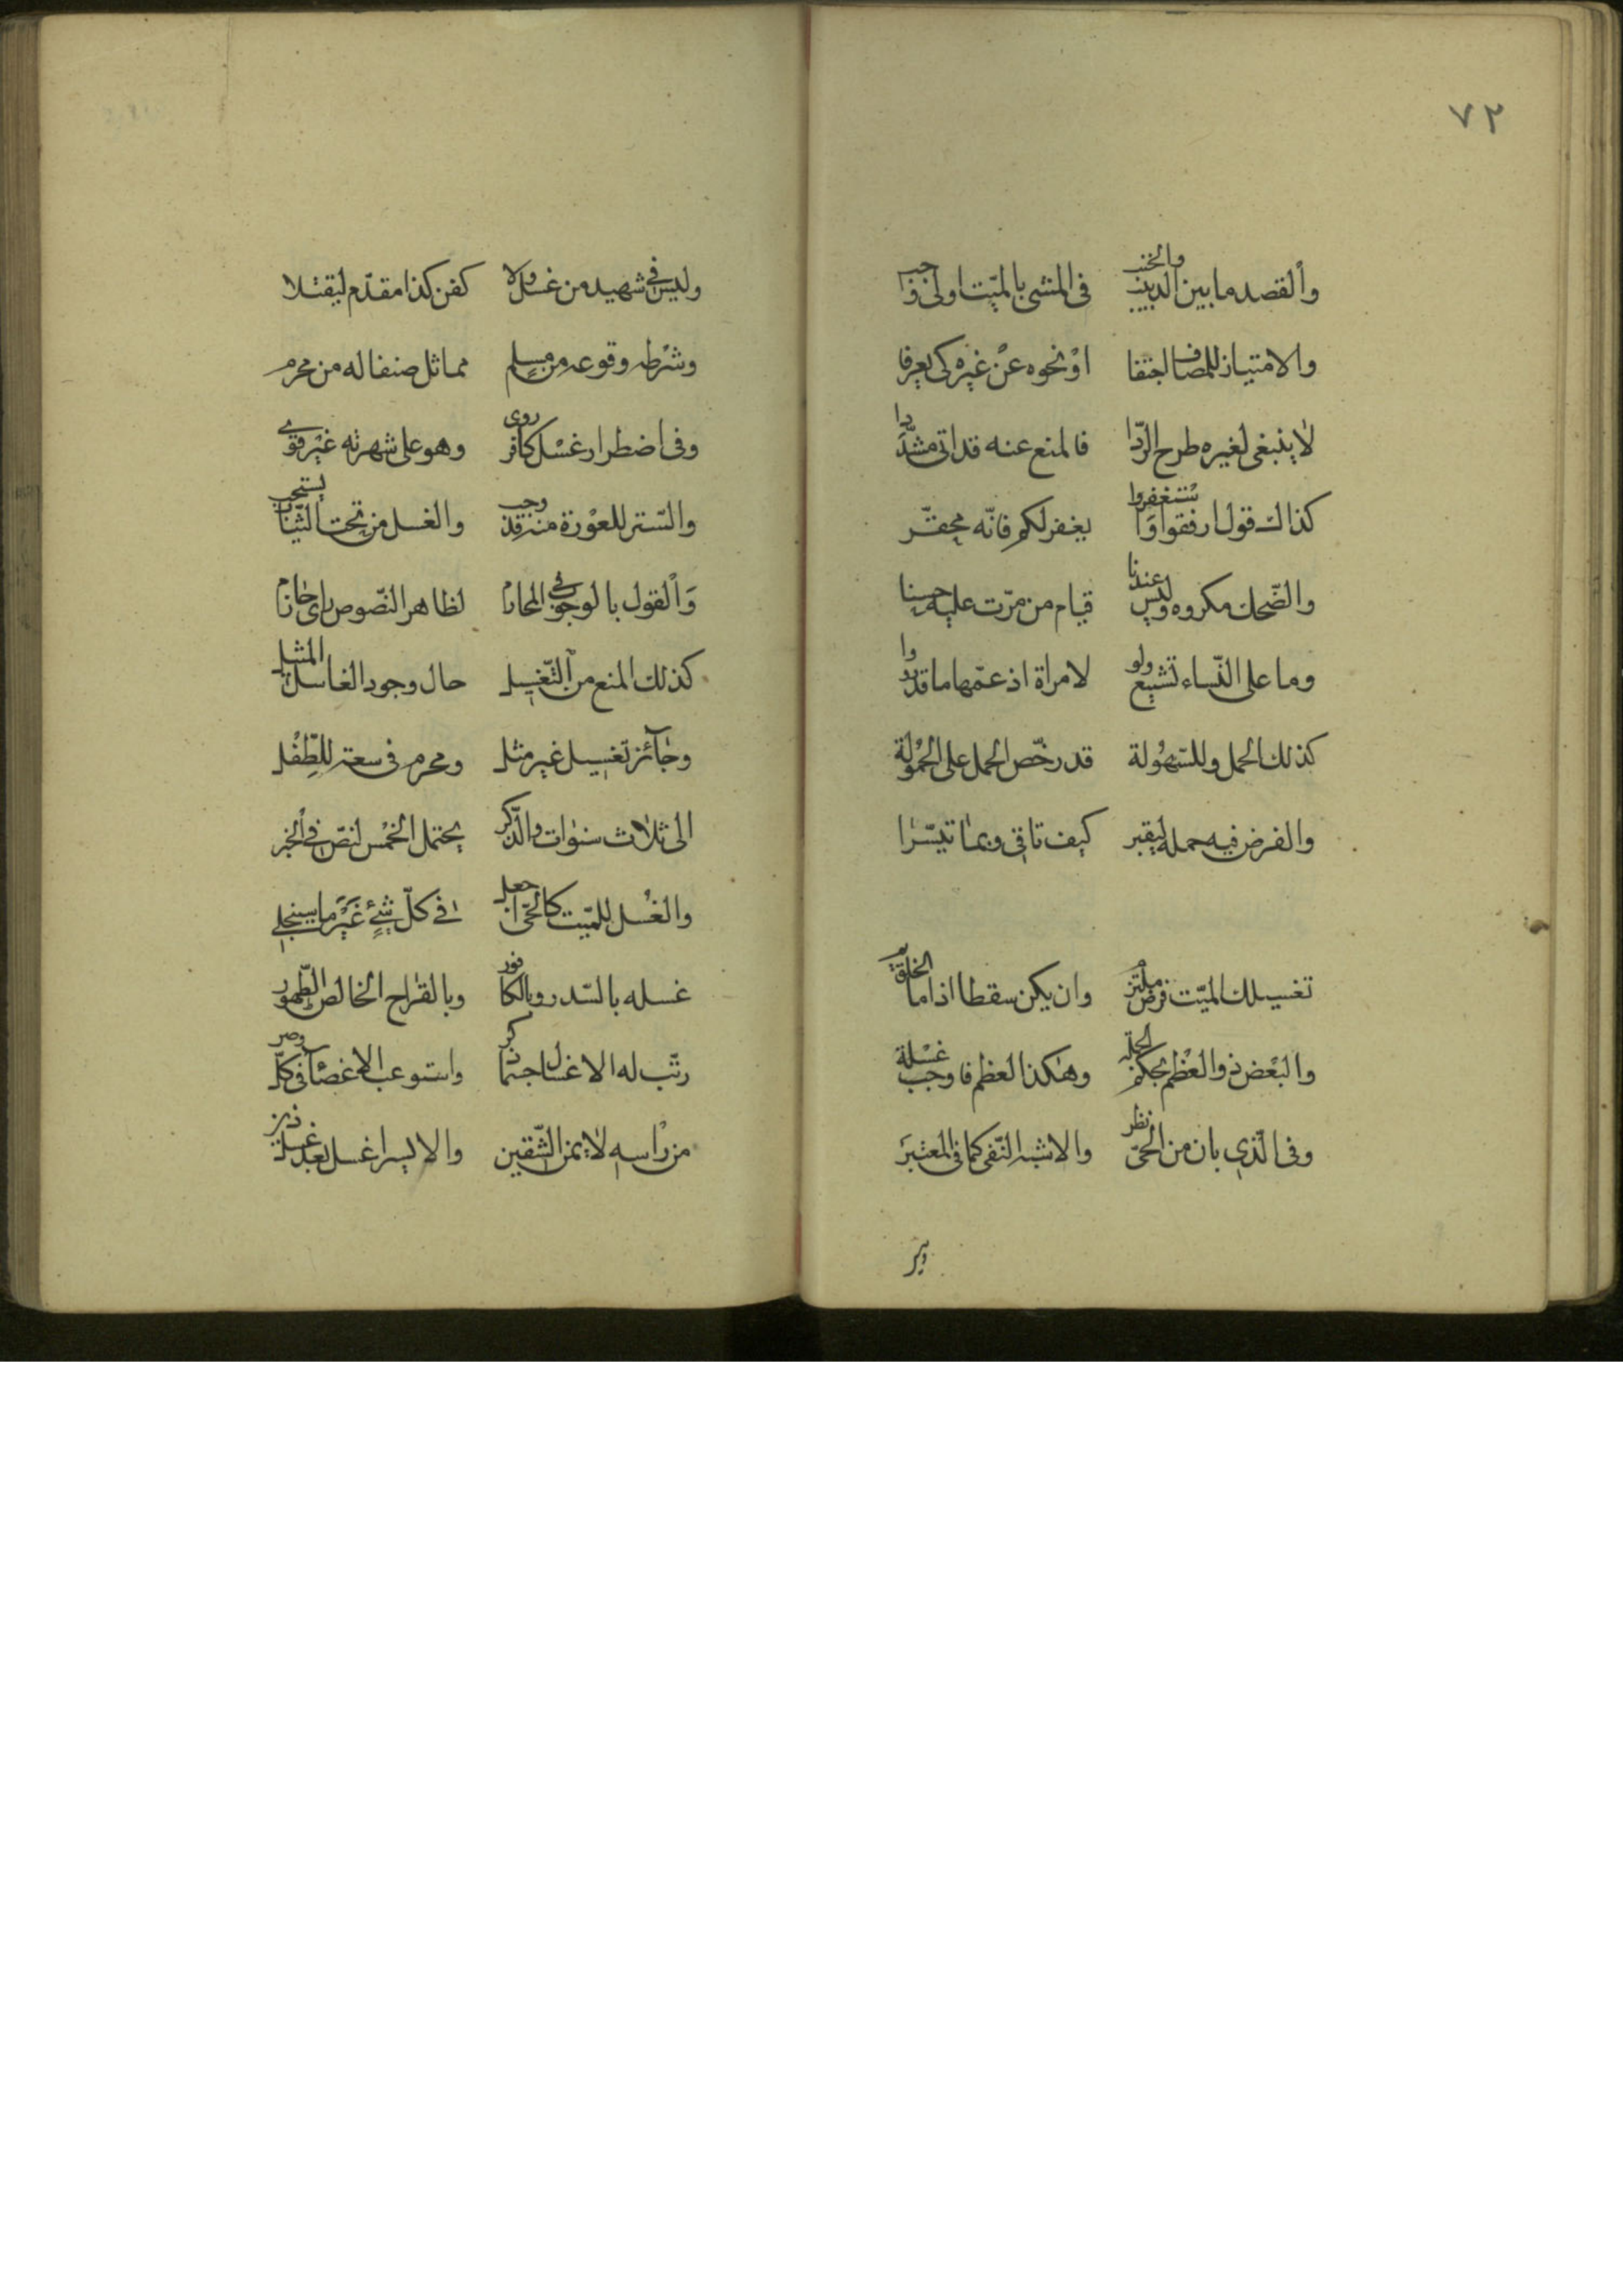 ٧٢
والقصد ما بين الدبيب والخبب في المشي بالميت اولى فاجب
والامتياز للمصاب بالحفا او نحوه عن غيره كي يعرفا
لا ينبغي لغيره طرح الردا فالمنع عنه قد اتى مشددا
كذاك قول ارفقوا واستغفروا يغفر لكم فانه محقر
والضحك مكروه وليس عندنا قيام من مرت عليه حسنا
وما على النساء تشييع ولو لامراة اذ عمها ما قد رووا
كذلك الحمل وللسهولة قد رخص الحمل على الحمولة
والفرض فيه حمله ليقبرا كيف تاتى وبما تيسرا
تغسيلك الميت فرض ملتزم وان يكن سقطا اذا ما الخلق تم
والبعض ذو العظم بحكم الجملة وهكذا العظم فاوجب غسله
وفي الذي بان من الحي نظر والاشبه النفي كما في المعتبر
وليس في شهيد من غسل ولا كفن كذا مقدم ليقتلا
وشرطه وقوعه من مسلم مماثل صنفا له من محرم
وفي اضطرار غسل كافر روي وهو على شهرته غير قوي
والستر للعورة منه قد وجب والغسل من تحت الثياب يستحب
والقول بالوجوب في المحارم لظاهر النصوص راي حازم
كذلك المنع من التغسيل حال وجود الغاسل المثيل
وجائز تغسيل غير مثل ومحرم في سعة للطفل
الى ثلاث سنوات والذكر يحتمل الخمس لنص في الخبر
والغسل للميت كالحي اجعل في كل شئ غير ما سينجلي
غسله بالسدر وبالكافور وبالقراح الخالص الطهور
رتب له الاغسال حتما ذكر واستوعب الاعضاء في كل وصر
من راسه لايمن الشقين والايسر اغسل بعد غسل ذين